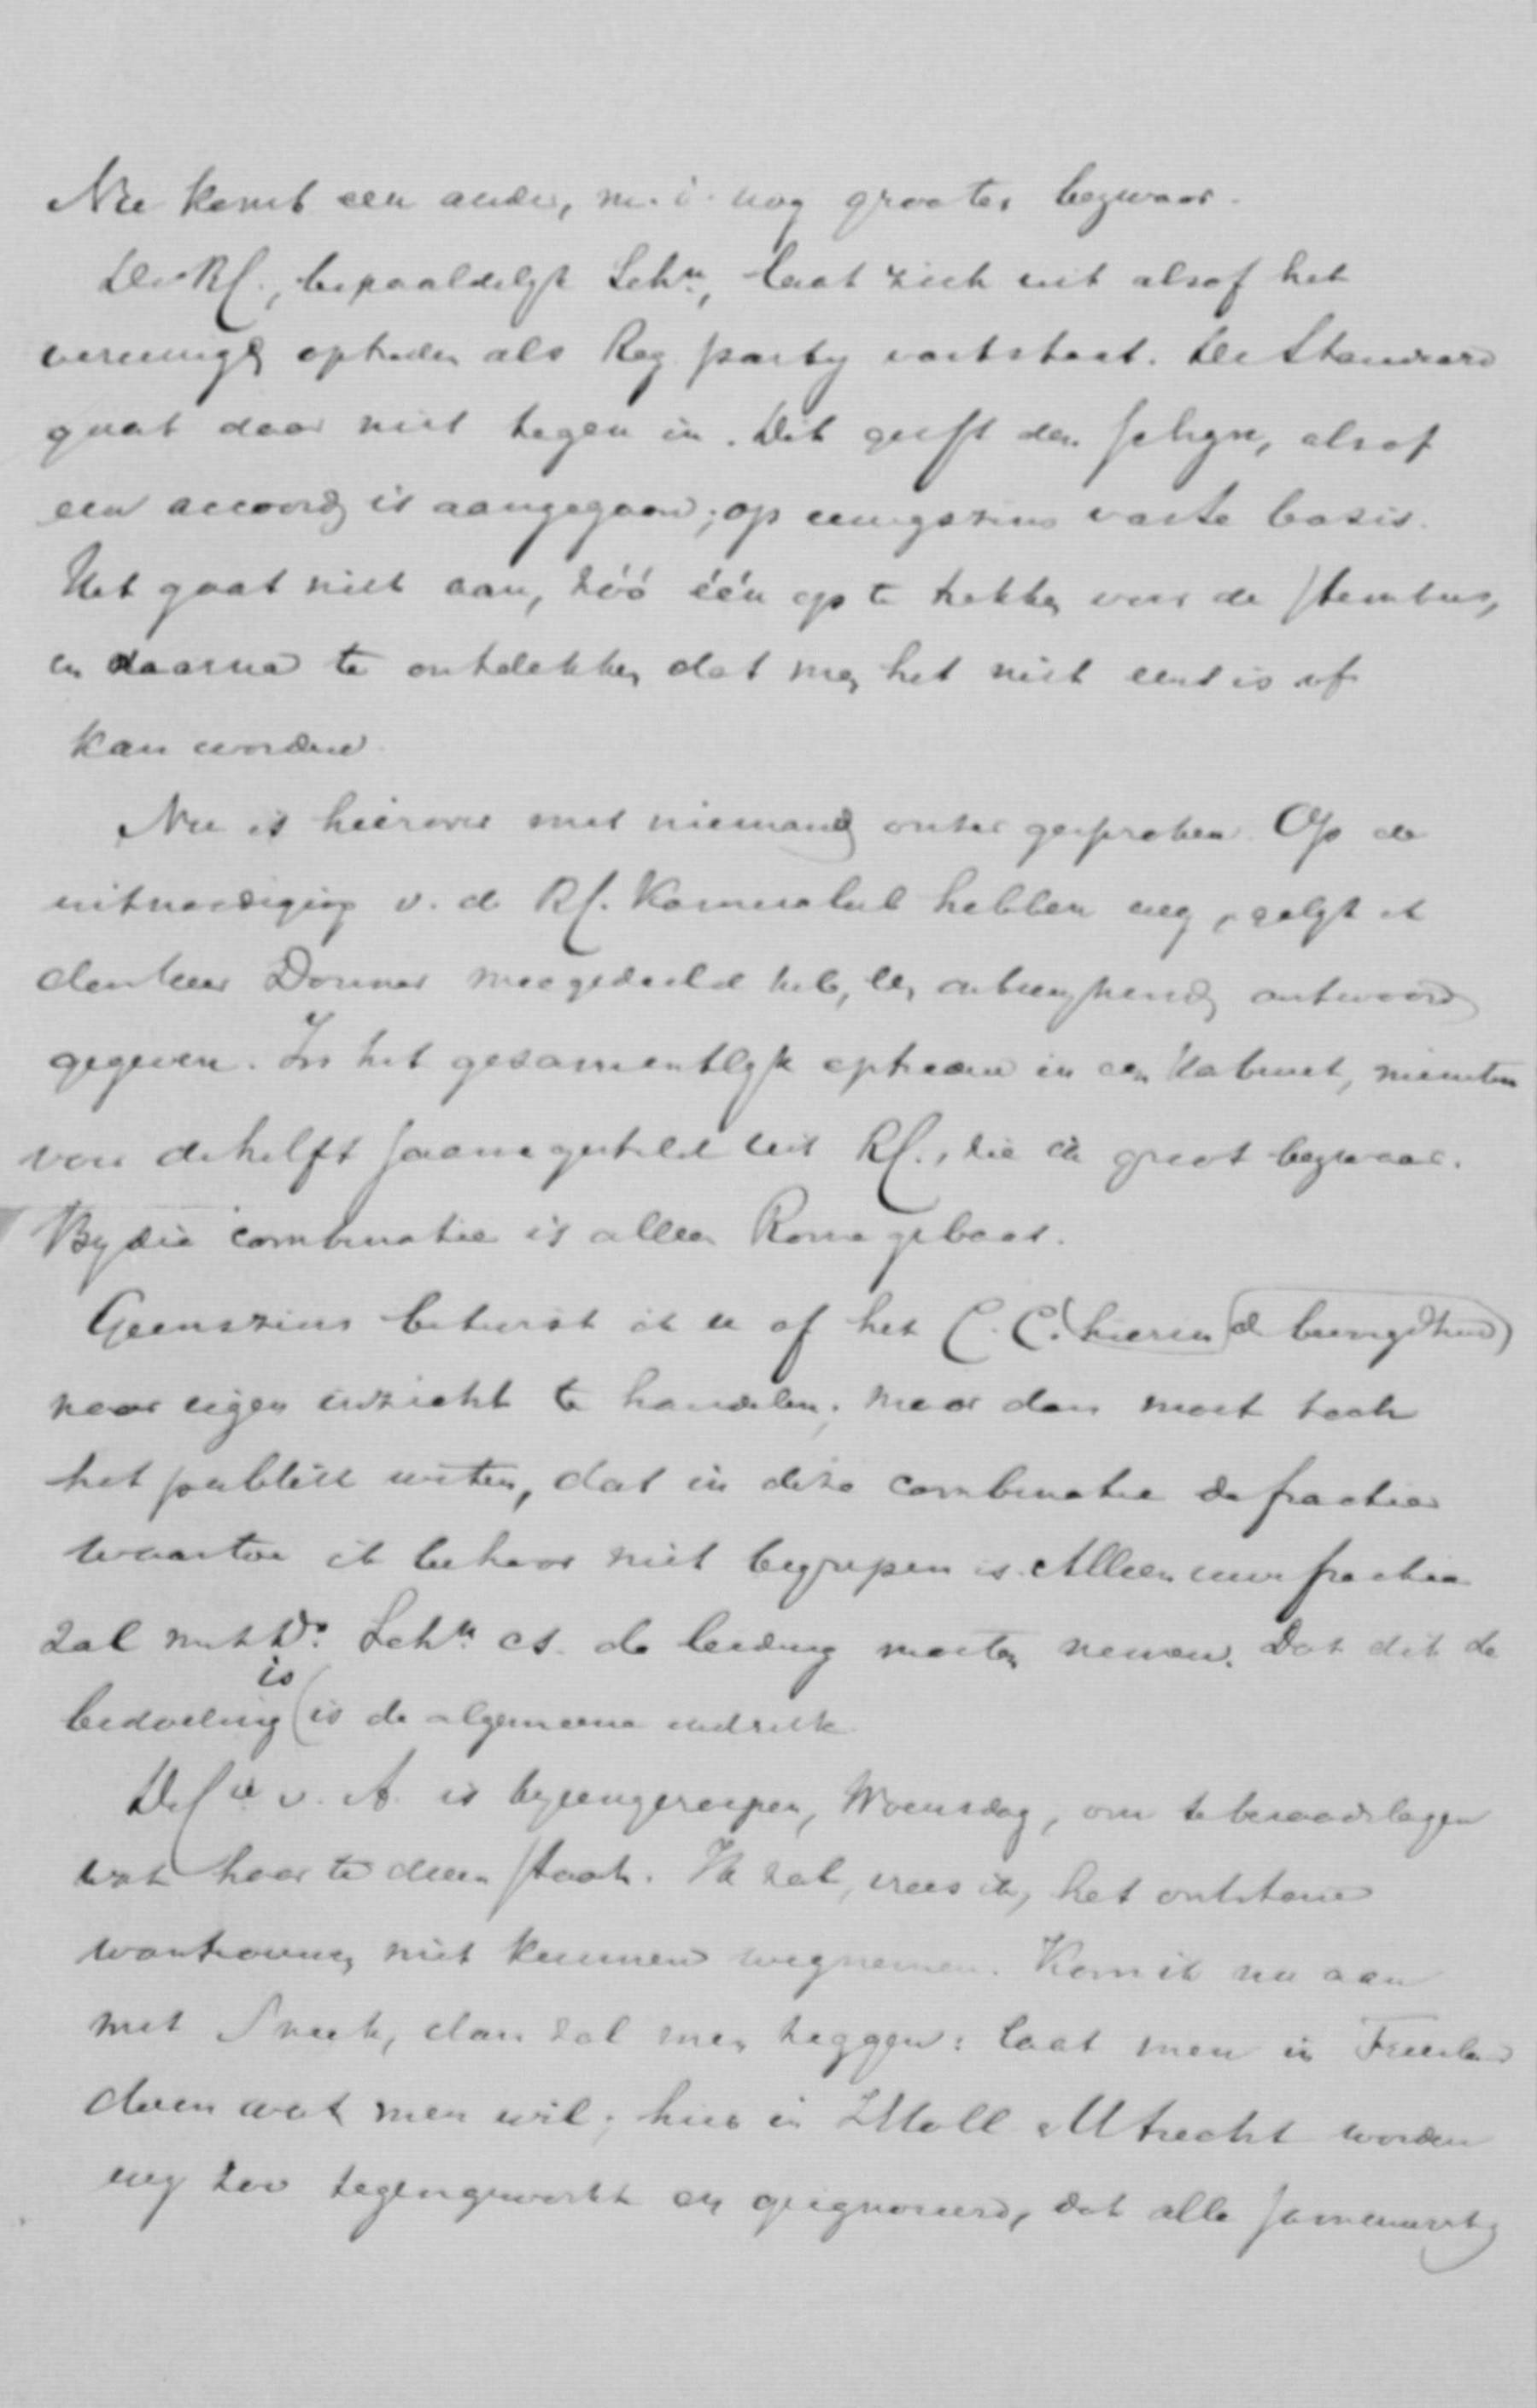 Nu komt een ander, m.i. nog grooter bezwaar.
De RC., bepaaldelyk Schn, laat zich uit alsof het
vereenigd optreden als Reg. party vaststaat. De Standaard
gaat daar niet tegen in. Dit geeft den schyn, alsof
een accoord is aangegaan; op eenigszins vaste basis.
Het gaat niet aan, zóó één op te trekken voor de stembus,
en daarna te ontdekken dat men het niet eens is of
kan worden.
Nu is hierover met niemand onzer gesproken. Op de
uitnoodiging v. d. RC. Kamerclub hebben wy, gelyk ik
den heer Donner meegedeeld heb, een ontwykend antwoord
gegeven. In het gezamentlyk optreden in een Kabinet, minstens
voor de helft saamgesteld uit RC., zie ik groot bezwaar.
By die combinatie is alleen Rome gebaat.
Geenszins betwist ik u of het C.C. hierin de bevoegdheid
naar eigen inzicht te handelen; maar dan moet toch
het publiek weten, dat in deze combinatie de fractie
waartoe ik behoor niet begrepen is. Alleen uw fractie
zal met Dr. Schn cs. de leiding moeten nemen. Dat dit de
bedoeling is is de algemeene indruk.
De Cie v. A. is byeengeroepen, Woensdag, om te beraadslagen
wat haar te doen staat. Ik zal, vrees ik, het ontstane
wantrouwen niet kunnen wegnemen. Kom ik nu aan
met Sneek, dan zal men zeggen: laat men in Friesland
doen wat men wil; hier in ZHoll & Utrecht worden
wy zoo tegengewerkt en geignoreerd, dat alle samenwerking